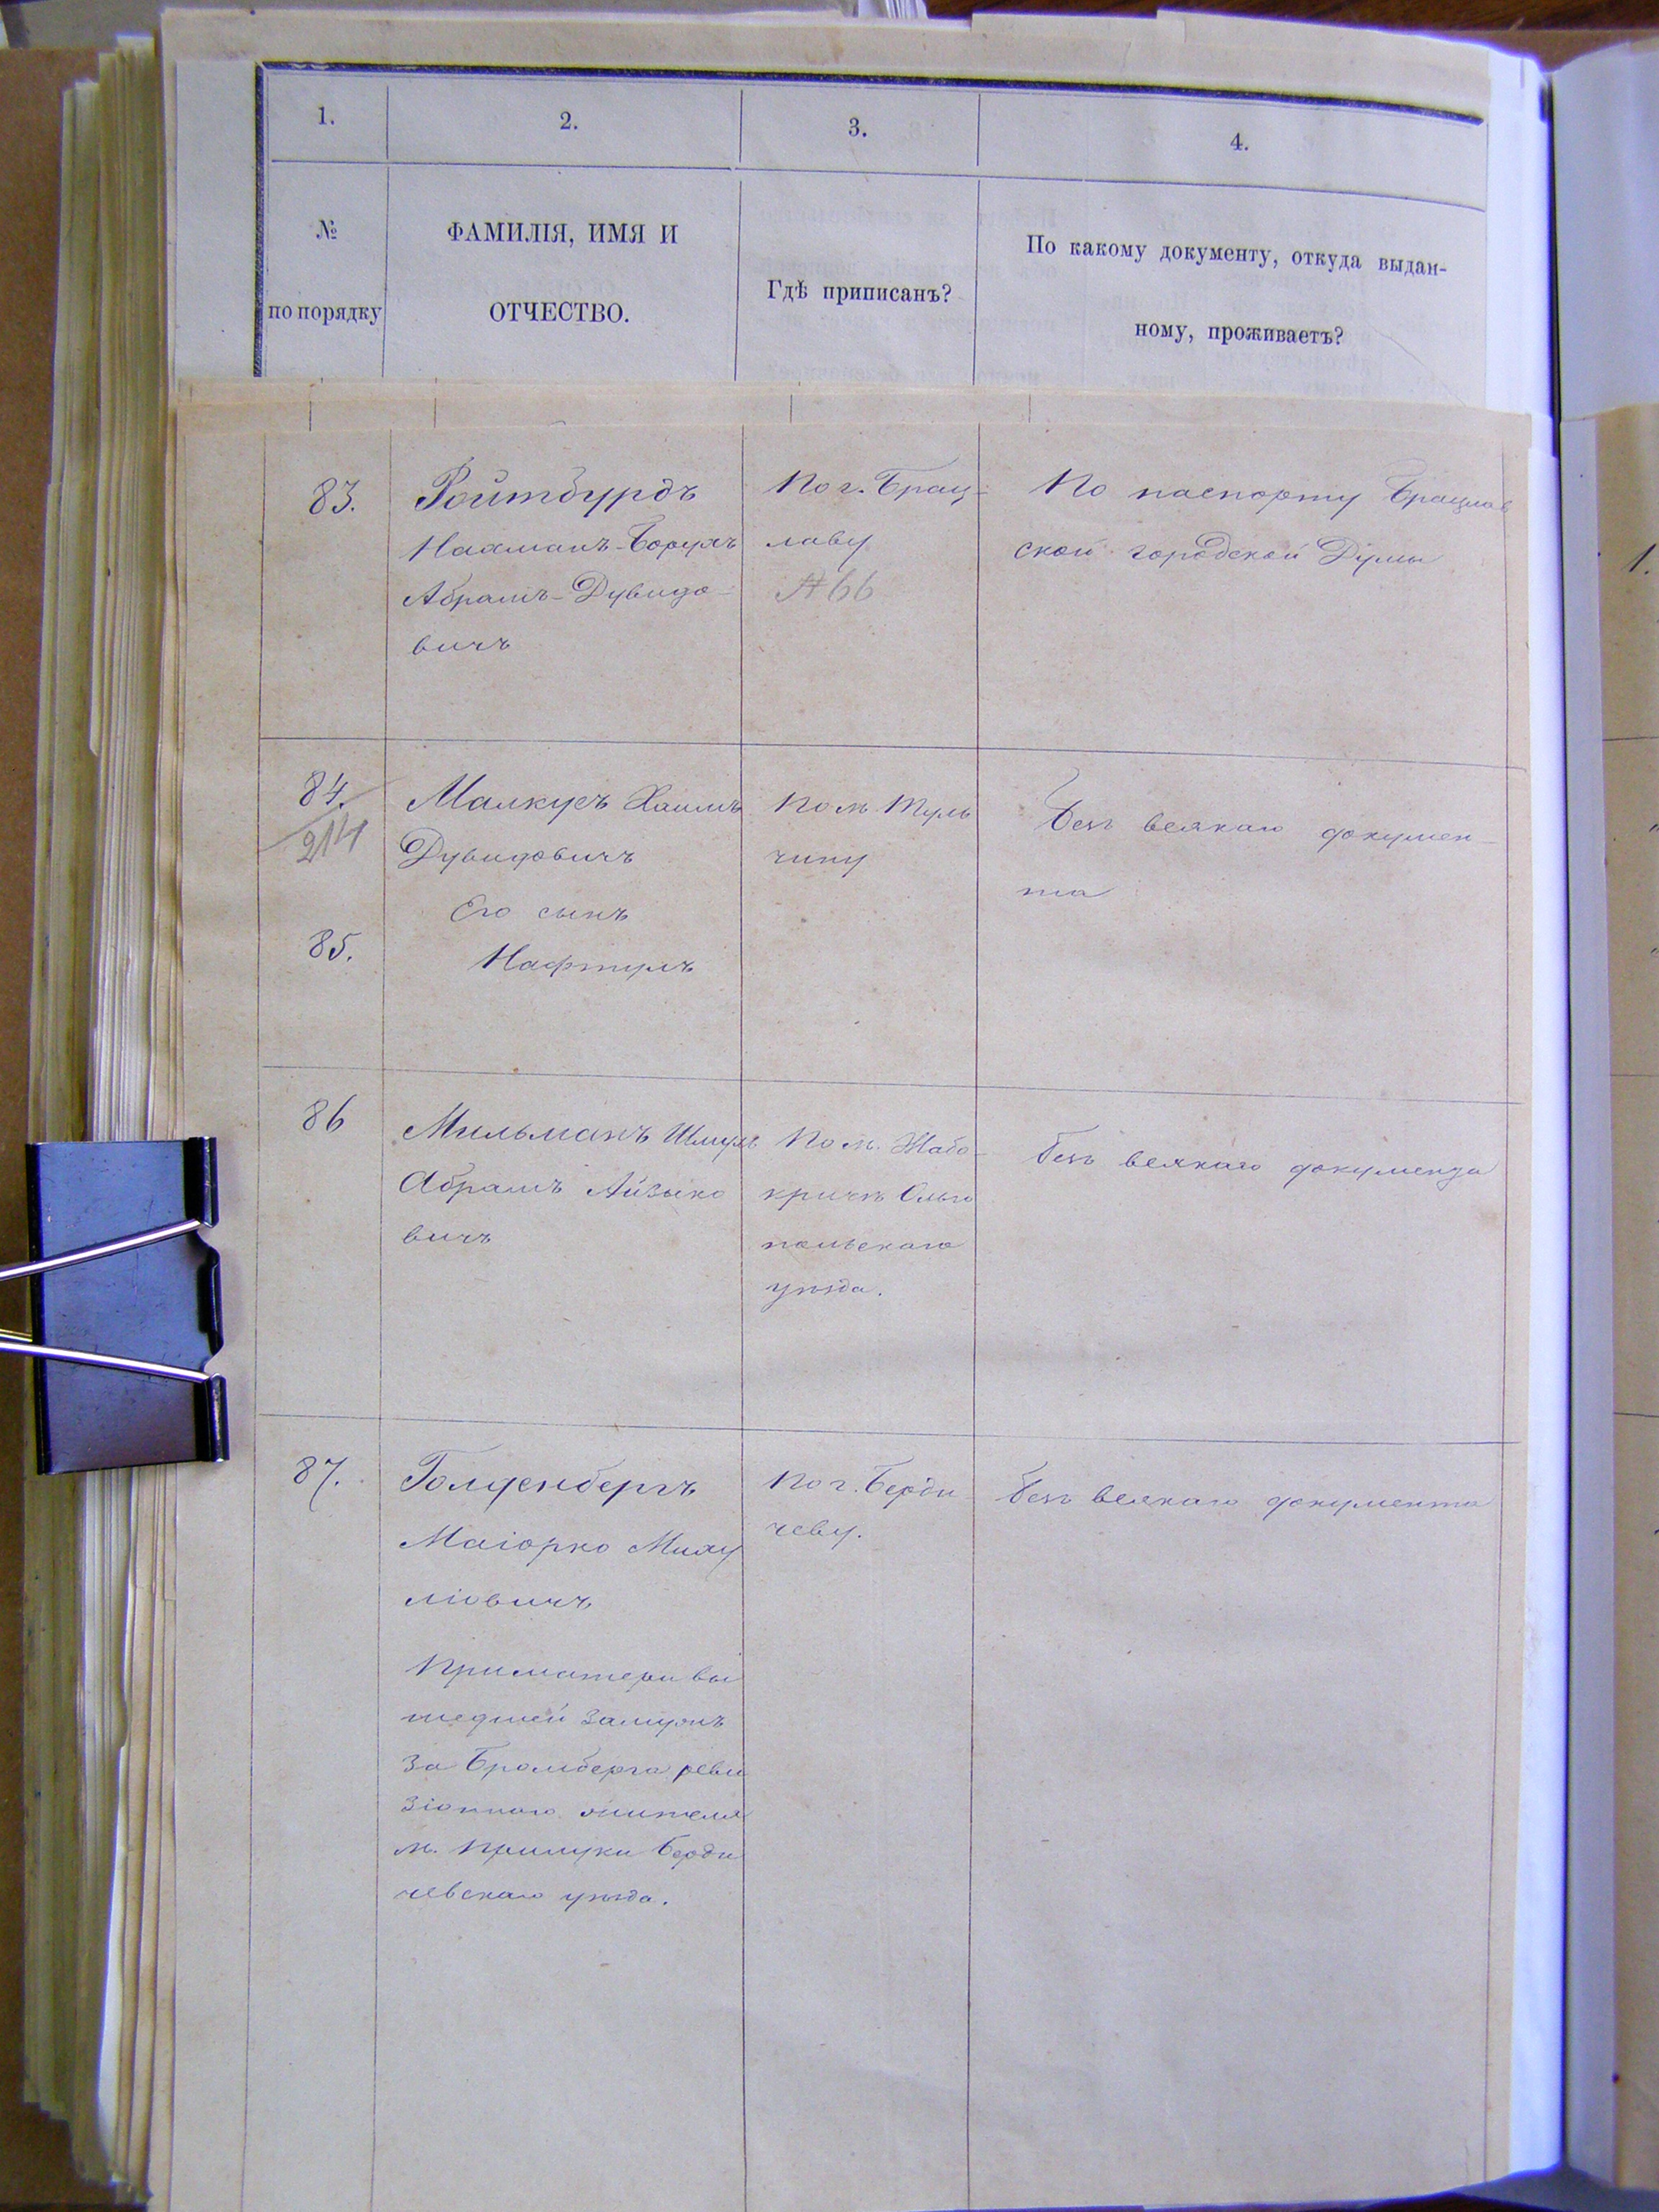 1.
2.
3.
4.
№
по порядку
ФАМИЛІЯ, ИМЯ И
ОТЧЕСТВО.
Гдѣ приписанъ?
По какому документу, откуда выдан-
ному, проживаетъ?
83.
Ройтбурдъ
Нахманъ-Борухъ
Абрамъ-Дувидо-
вичъ
По г. Брац-
лаву
№ 66
По паспорту Брацлав
ской городской Думы
84.
214
Малкусъ Хаимъ
Дувидовичъ
Его сынъ
85.
Нафтулъ
По м Туль
чину
Безъ всякаго докумен-
та
86
Мильманъ Шмуль
Абрамъ Айзико
вичъ
По м. Жабо-
кричъ Ольго
польскаго
уѣзда.
Безъ всякаго документа
87.
Голденбергъ
Маіорко Миху
ліовичъ
При матери вы
шедшей замужъ
за Бромберга реви
зіоннаго жителя
м. Прилуки Берди
чевскаго уѣзда.
По г. Берди
чеву.
Безъ всякаго документа
1.